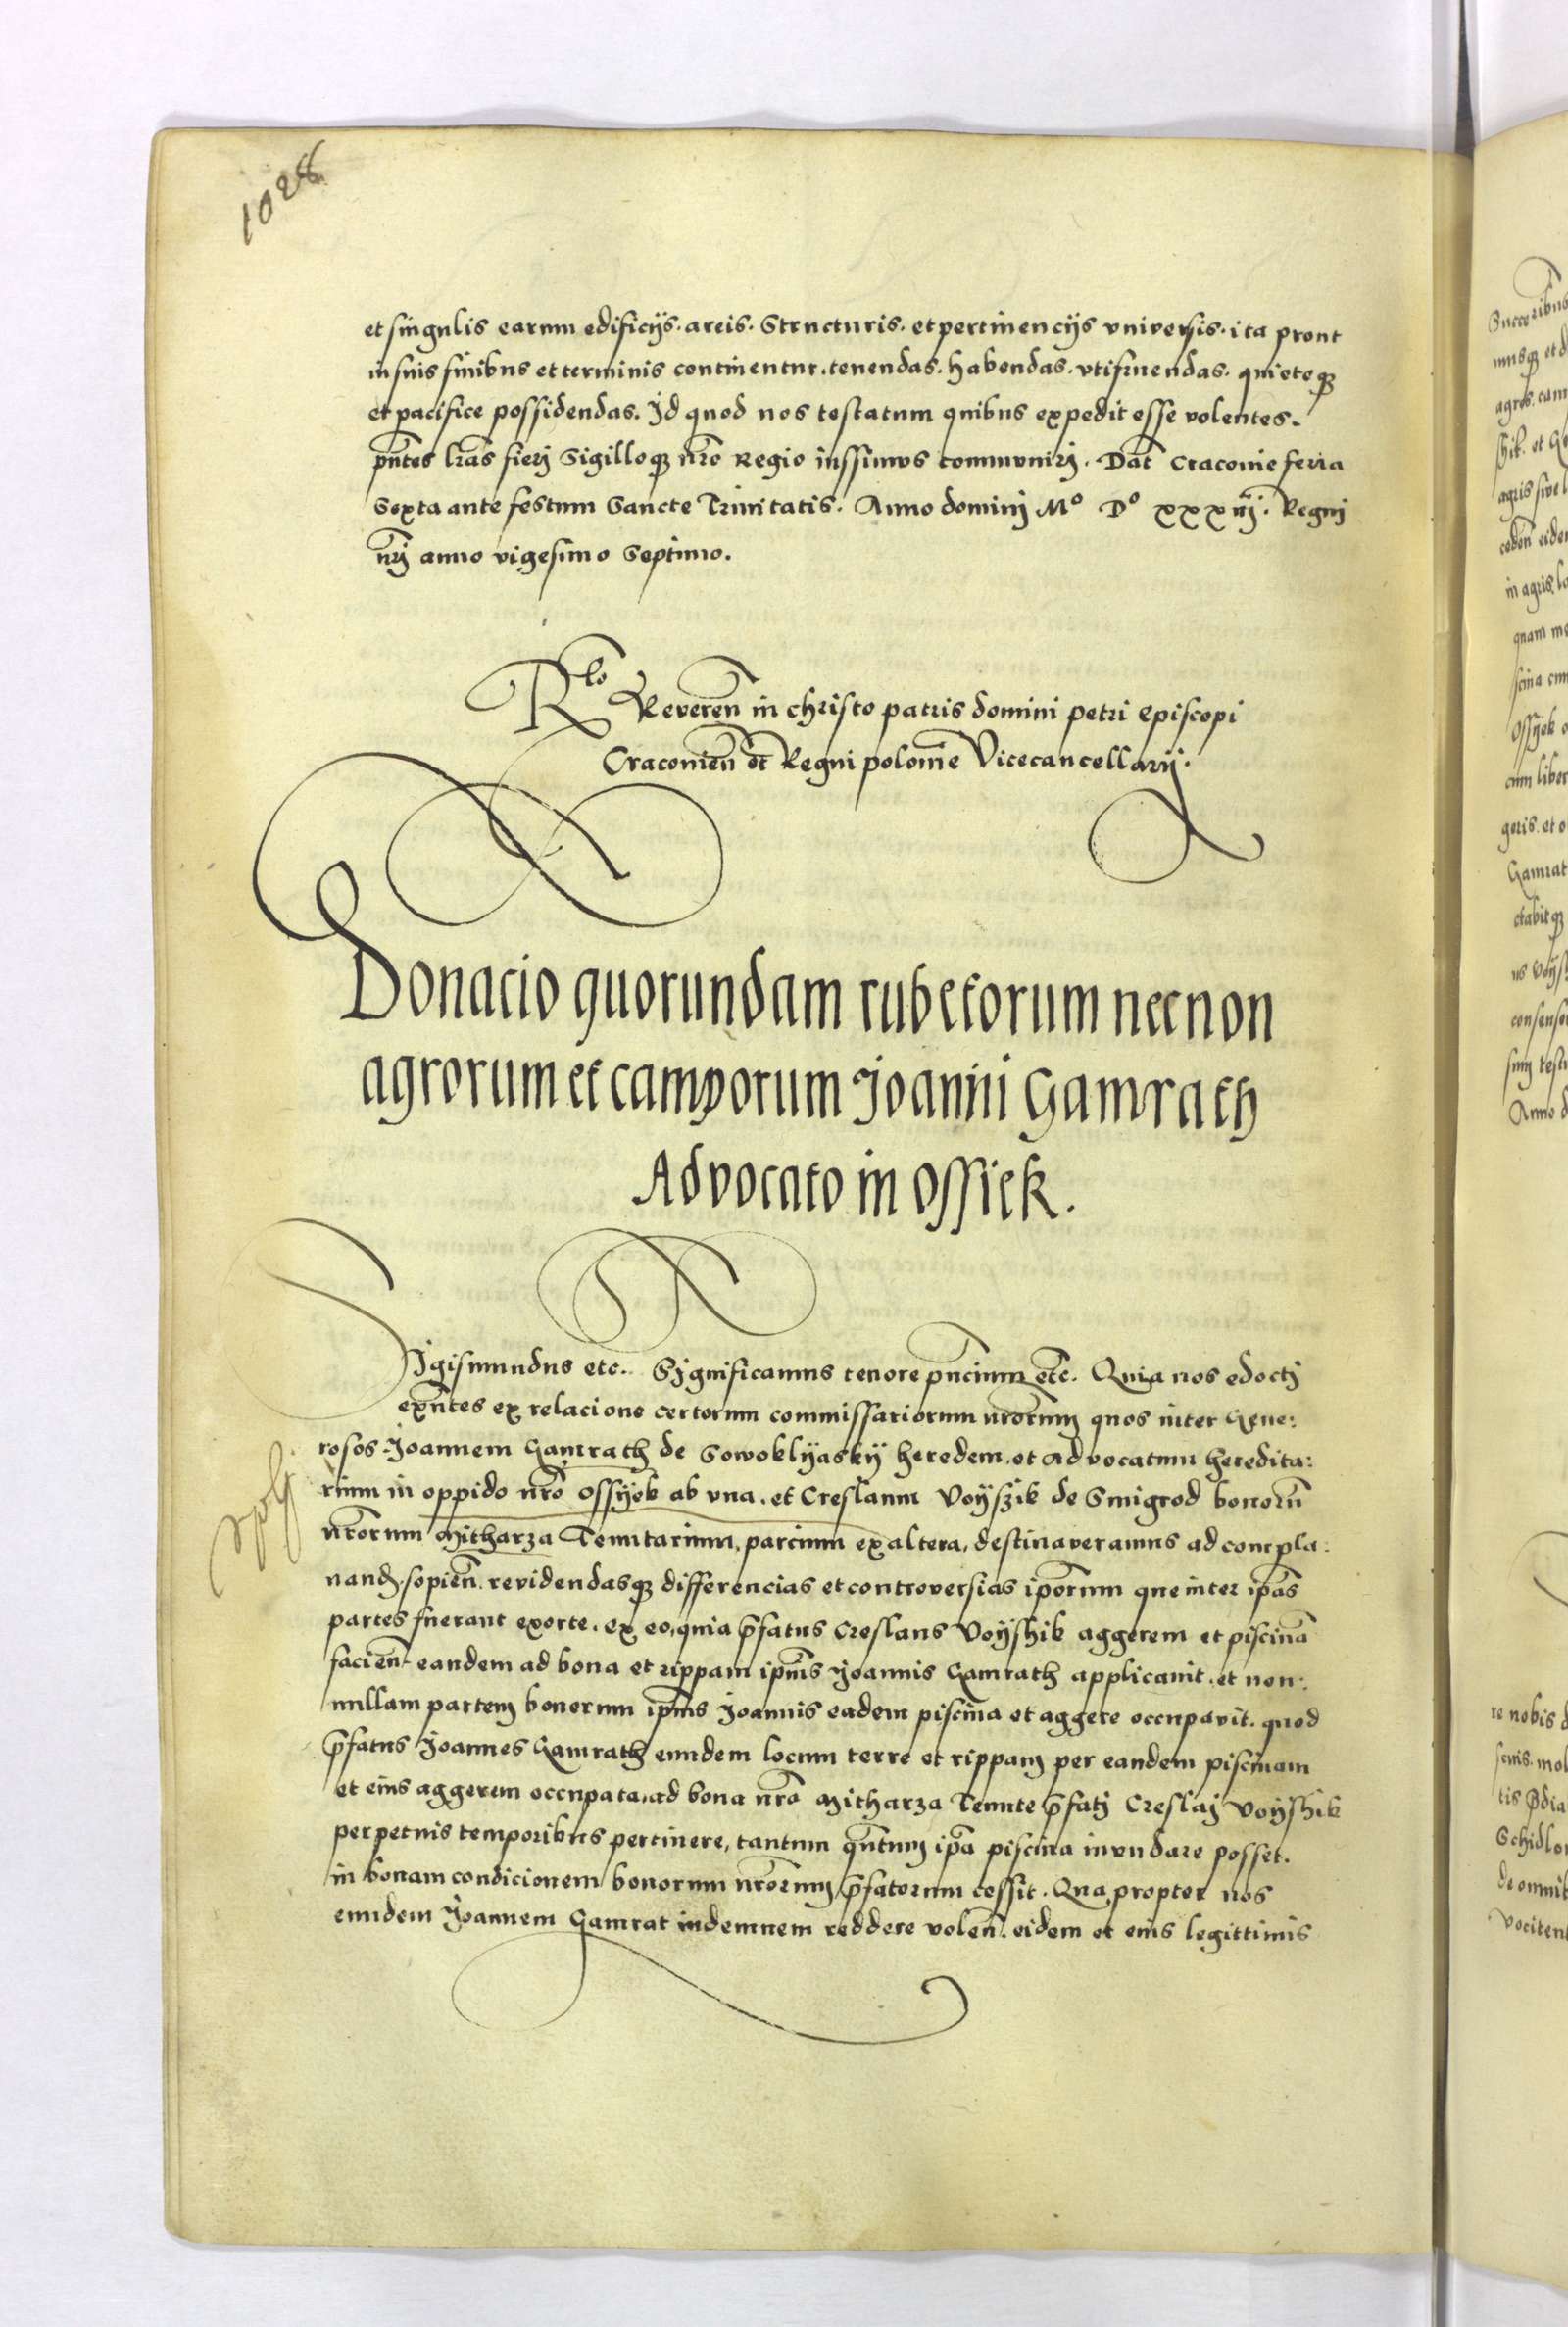 1028
et singulis earum edificijs. areis. Structuris. et pertinencijs vniversis. ita prout
in suis finibus et terminis continentur. tenendas. habendas. vtifruendas. quieteqз
et pacifice possidendas. Id quod nos testatum quibus expedit esse volentes.
pñtes lrãs fierj Sigilloqз nrõ Regio iussimus communirj. Dat̃ Cracovie feria
Sexta ante festum Sancte Trinitatis. Anno dominj Mº Dº xxxiij. Regnj
nrj̃ anno vigesimo Septimo.
Rlo Reveren̄ in christo patris domini petri Episcopi
Cracovien̄ et Regni polonie Vicecancellarij.
Donacio quorundam rubetorum necnon
agrorum et camporum Joanni Gamrath
Advocato in Ossiek.
Sigismundus etc. Significamus tenore pñcium etc. Quia nos edoctj
exñtes ex relacione certorum commissariorum nrõrum quos inter Gene:
rosos Joannem Gamrath de Sowoklijaskij heredem. et advocatum heredita:
rium in oppido nrõ Ossijek ab vna. et Creslaum Voijszik de Smigrod bonorũ
nrõrum Mitharza Tenutarium, parcium ex altera, destinaveramus ad compla:
nand. sopien̄. revidendasqз differencias et controversias ipõrum que inter ipãs
partes fuerant exorte. ex eo, quia p̃fatus Creslaus Voijshik aggerem et piscinã
facien̄ eandem ad bona et rippam ipiũs Joannis Gamrath applicauit. et non:
nullam partem bonorum ipiũs Joannis eadem piscina et aggere occupavit. quod
p̃fatus Joannes Gamrath eundem locum terre et rippam per eandem piscinam
et eius aggerem occupata, ad bona nrã Mitharza Tenute p̃fatj Creslaj Voijshik
perpetuis temporibus pertinere, tantum quñtum ipã piscina invndare posset.
in bonam condicionem bonorum nrõrum p̃fatorum cessit. Qua propter nos
eundem Joannem Gamrat indemnem reddere volen̄. eidem et eius legittimis